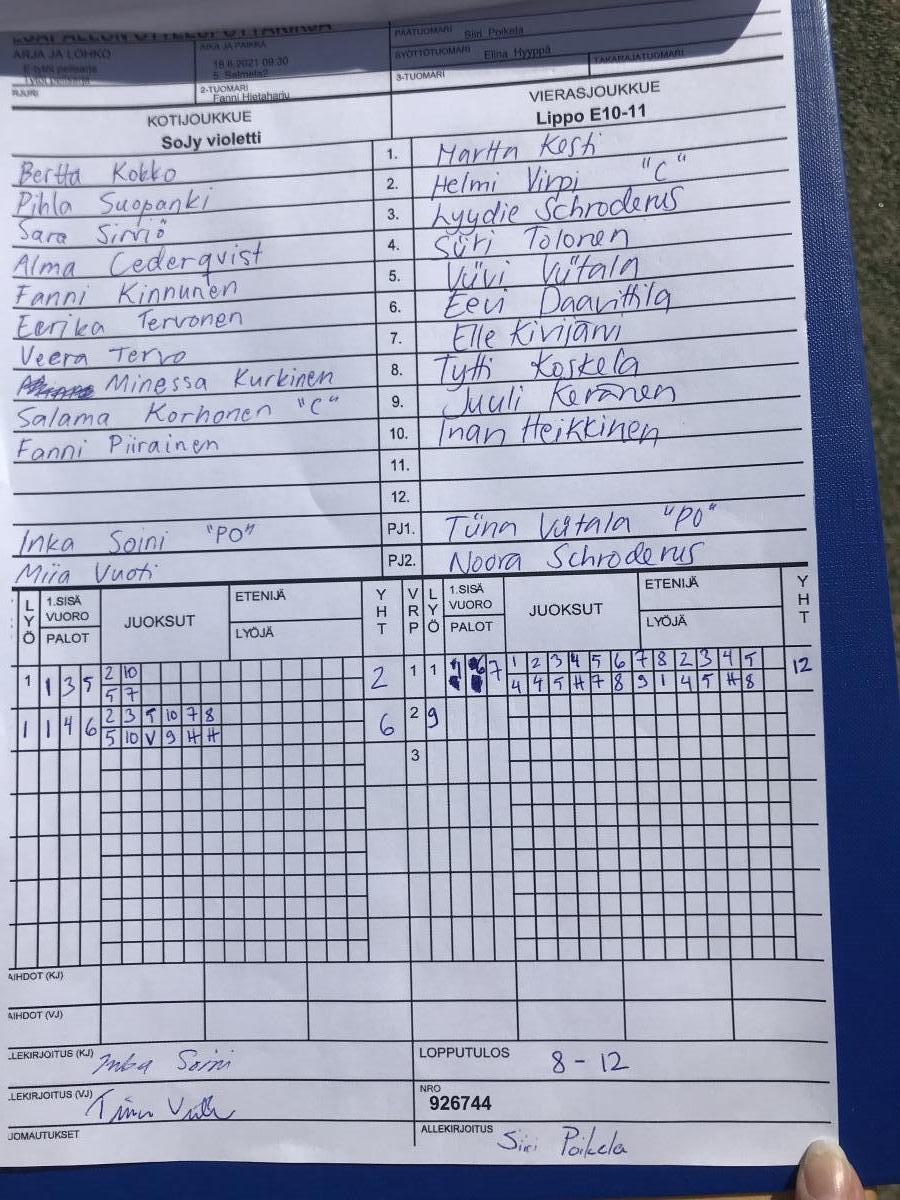 ESÄPALLON OTTELUPÖYTÄKIRJA
ARJA JA LOHKO
AIKA JA PAIKKA
18.6.2021 09:30
PÄÄTUOMARI Siiri Poikela
SYÖTTÖTUOMARI Elina Hyyppä
TAKARAJATUOMARI
2-TUOMARI
Fanni Hietaharju
3-TUOMARI
KOTIJOUKKUE
SoJy violetti
VIERASJOUKKUE
Lippo E10-11
Bertta Kokko 1. Martta Kesti
Pihla Suopanki 2. Helmi Virpi "C"
Sara Sirviö 3. Lyydie Schroderus
Alma Cederqvist 4. Siiri Tolonen
Fanni Kinnunen 5. Viivi Viitala
Eerika Tervonen 6. Eevi Daavittila
Veera Tervo 7. Elle Kivijärvi
Minessa Kurkinen 8. Tytti Koskela
Salama Korhonen "C" 9. Juuli Keränen
Fanni Piirainen 10. Inan Heikkinen
11.
12.
Inka Soini "PO" PJ1. Tiina Viitala "PO"
Miia Vuoti PJ2. Noora Schroderus
LYÖ 1.SISÄ VUORO PALOT JUOKSUT ETENIJÄ LYÖJÄ YHT VRP LYÖ 1.SISÄ VUORO PALOT JUOKSUT ETENIJÄ LYÖJÄ YHT
1 1 3 5 2 10 2 1 1 7 1 2 3 4 5 6 7 8 2 3 4 5 12
5 7 4 4 5 H 7 8 9 1 4 5 H 8
1 1 4 6 2 3 5 10 7 8 6 2 9
5 10 V 9 H H
3
AIHDOT (KJ)
AIHDOT (VJ)
LLEKIRJOITUS (KJ) Inka Soini
LOPPUTULOS 8 - 12
LLEKIRJOITUS (VJ)
NRO
926744
UOMAUTUKSET
ALLEKIRJOITUS Siiri Poikela